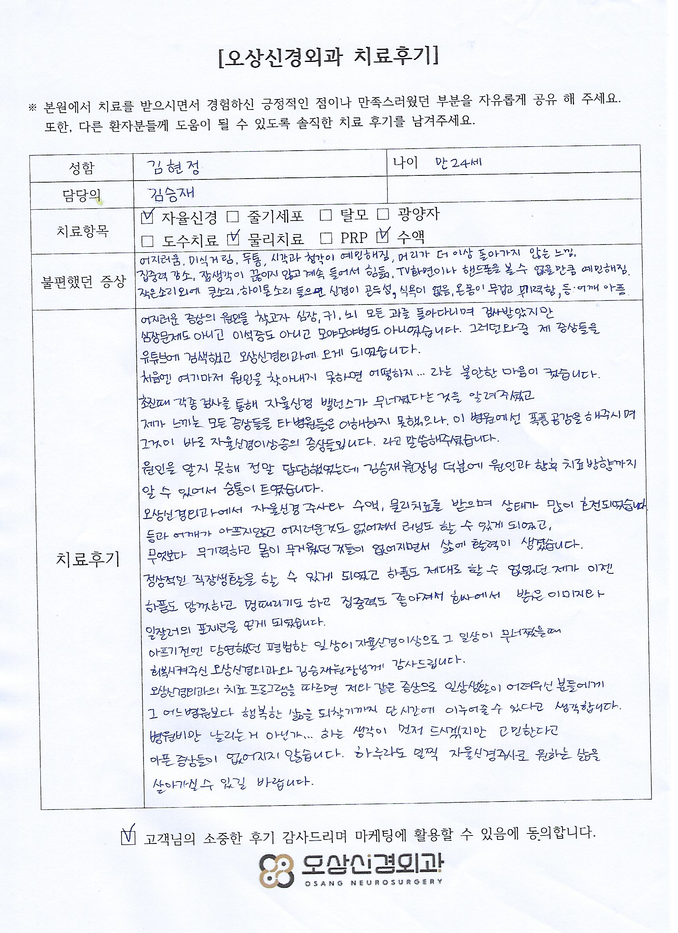 [오상신경외과 치료후기]
※ 본원에서 치료를 받으시면서 경험하신 긍정적인 점이나 만족스러웠던 부분을 자유롭게 공유 해 주세요.
또한, 다른 환자분들께 도움이 될 수 있도록 솔직한 치료 후기를 남겨주세요.
성함 김현정 나이 만24세
담당의 김승재
치료항목 ☑ 자율신경 ☐ 줄기세포 ☐ 탈모 ☐ 광양자
☐ 도수치료 ☑ 물리치료 ☐ PRP ☑ 수액
불편했던 증상
어지러움, 미식거림, 두통, 시각과 청각이 예민해짐, 머리가 더 이상 돌아가지 않는 느낌,
집중력 감소, 잡생각이 끊이지 않고 계속 들어서 힘듦, TV화면이나 핸드폰을 볼 수 없을만큼 예민해짐,
작은소리외에 큰소리, 하이톤 소리 들으면 신경이 곤두섬, 식욕이 없음, 온몸이 무겁고 무기력함, 등·어깨 아픔
치료후기
어지러운 증상의 원인을 찾고자 심장, 귀, 뇌 모든 과를 돌아다니며 검사받았지만
심장문제도 아니고 이석증도 아니고 모야모야병도 아니었습니다. 그러던와중 제 증상들을
유튜브에 검색했고 오상신경외과에 오게 되었습니다.
처음엔 여기마저 원인을 찾아내지 못하면 어떻하지... 라는 불안한 마음이 컸습니다.
초진때 각종 검사를 통해 자율신경 밸런스가 무너졌다는것을 알려주셨고
제가 느끼는 모든 증상들을 타병원들은 이해하지 못했으나, 이 병원에선 폭풍공감을 해주시며
그것이 바로 자율신경이상증의 증상들입니다. 라고 말씀해주셨습니다.
원인을 알지 못해 정말 답답했었는데 김승재원장님 덕분에 원인과 향후 치료방향까지
알 수 있어서 숨통이 트였습니다.
오상신경외과에서 자율신경주사와 수액, 물리치료를 받으며 상태가 많이 호전되었습니다
등과 어깨가 아프지않고 어지러운것도 없어져서 러닝도 할 수 있게 되었고,
무엇보다 무기력하고 몸이 무거웠던 것들이 없어지면서 삶에 활력이 생겼습니다.
정상적인 직장생활을 할 수 있게 되었고 하품도 제대로 할 수 없었던 제가 이젠
하품도 맘껏하고 멍때리기도 하고 집중력도 좋아져서 회사에서 밝은 이미지와
일잘러의 포지션을 얻게 되었습니다.
아프기전엔 당연했던 평범한 일상이 자율신경이상으로 그 일상이 무너졌을때
회복시켜주신 오상신경외과와 김승재원장님께 감사드립니다.
오상신경외과의 치료 프로그램을 따르면 저와 같은 증상으로 일상생활이 어려우신 분들에게
그 어느병원보다 행복한 삶을 되찾기까지 단시간에 이루어질수 있다고 생각합니다.
병원비만 날리는거 아닌가... 하는 생각이 먼저 드시겠지만 고민한다고
아픈 증상들이 없어지지 않습니다. 하루라도 일찍 자율신경주사로 원하는 삶을
살아가실 수 있길 바랍니다.
☑ 고객님의 소중한 후기 감사드리며 마케팅에 활용할 수 있음에 동의합니다.
오상신경외과
OSANG NEUROSURGERY